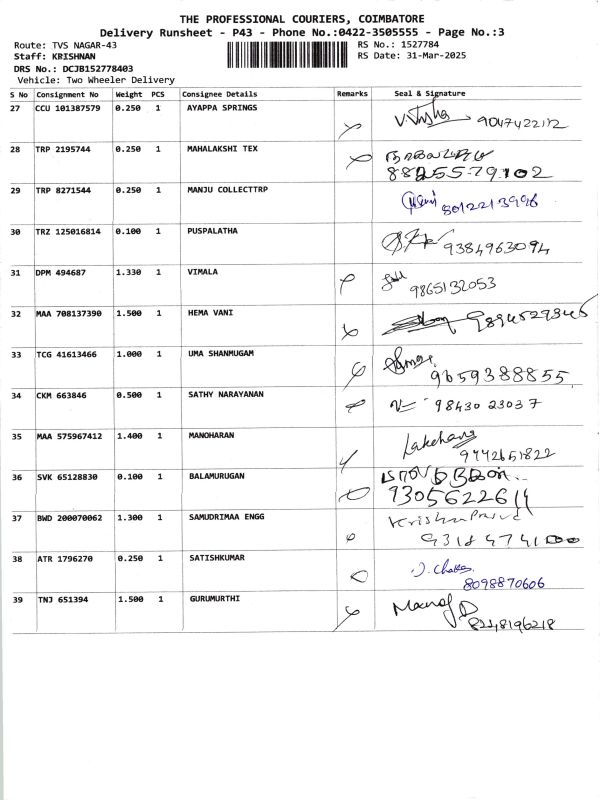 THE PROFESSIONAL COURIERS, COIMBATORE
Delivery Runsheet - P43 - Phone No.:0422-3505555 - Page No.:3
Route: TVS NAGAR-43 RS No.: 1527784
Staff: KRISHNAN RS Date: 31-Mar-2025
DRS No.: DCJB152778403
Vehicle: Two Wheeler Delivery
S No Consignment No Weight PCS Consignee Details Remarks Seal & Signature
27 CCU 101387579 0.250 1 AYAPPA SPRINGS 9047422112
28 TRP 2195744 0.250 1 MAHALAKSHI TEX
29 TRP 8271544 0.250 1 MANJU COLLECTTRP 8012213996
30 TRZ 125016814 0.100 1 PUSPALATHA 9384963094
31 DPM 494687 1.330 1 VIMALA 9865132053
32 MAA 708137390 1.500 1 HEMA VANI 9894529346
33 TCG 41613466 1.000 1 UMA SHANMUGAM
9659388855
34 CKM 663846 0.500 1 SATHY NARAYANAN 98430 23037
35 MAA 575967412 1.400 1 MANOHARAN
9442651822
36 SVK 65128830 0.100 1 BALAMURUGAN
9305622611
37 BWD 200070062 1.300 1 SAMUDRIMAA ENGG
38 ATR 1796270 0.250 1 SATISHKUMAR
8098870606
39 TNJ 651394 1.500 1 GURUMURTHI Manoj D
8248196218